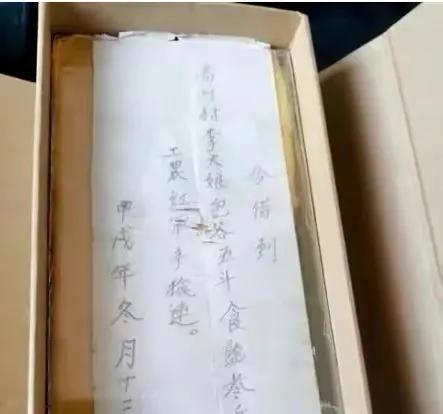 今借到
高川村李大娘包谷五斗食盐叁
工农红军手枪连。
甲戌年冬月十二